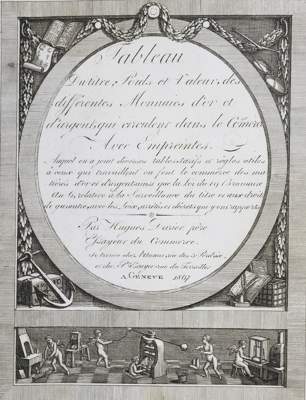 Tableau
Du titre, Poids et Valeur, des
différentes Monnaies d'or et
d'argent, qui circulent dans le Comerce
Avec Empreintes.
Auquel on a joint diverses tables, tarifs et règles utiles
à ceux qui travaillent ou font le commerce des ma
tières d'or et d'argent, ainsi que la loi du 19 Brumaire
An 6, relative à la Surveillance du titre et aux droits
de garantie, avec les
Par Hugues Darier père
Essayeur du Commerce.
A GENÈVE 1807